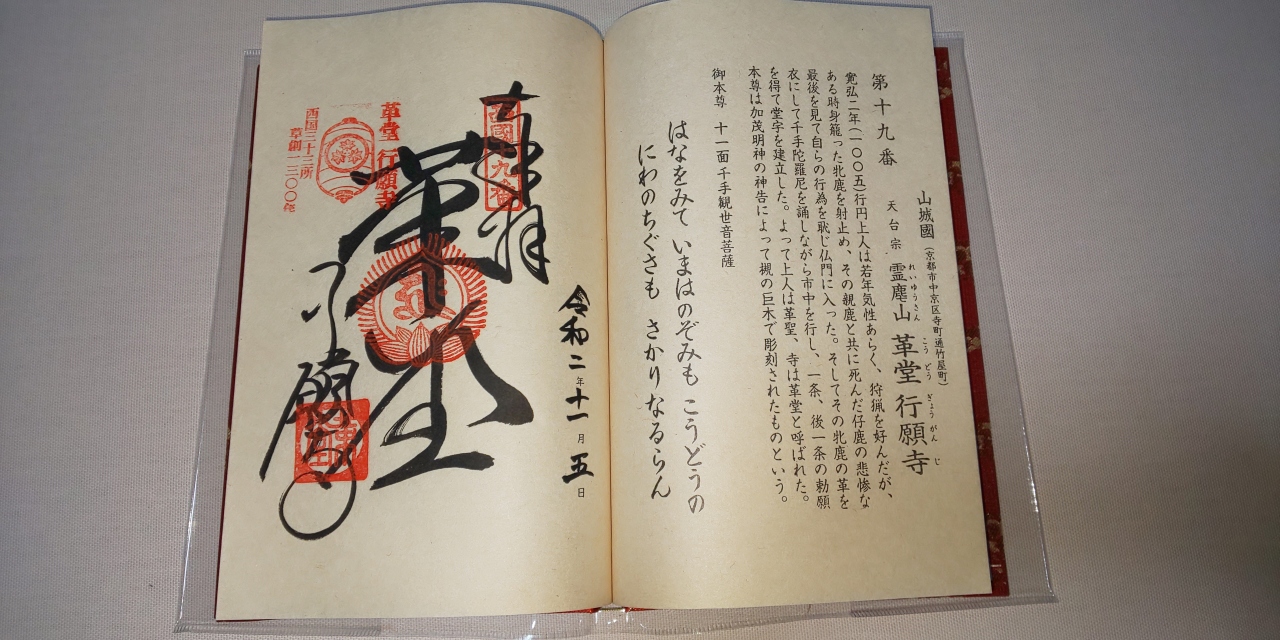 第十九番
山城國(京都市中京区寺町通竹屋町)
天台宗 霊麀山 革堂 行願寺
れいゆうさん こうどう ぎょうがんじ
寛弘二年(一〇〇五)行円上人は若年気性あらく、狩猟を好んだが、
ある時身籠った牝鹿を射止め、その親鹿と共に死んだ仔鹿の悲惨な
最後を見て自らの行為を恥じ仏門に入った。そしてその牝鹿の革を
衣にして千手陀羅尼を誦しながら市中を行し、一条、後一条の勅願
を得て堂宇を建立した。よって上人は革聖、寺は革堂と呼ばれた。
本尊は加茂明神の神告によって槻の巨木で彫刻されたものという。
御本尊 十一面千手観世音菩薩
はなをみて いまはのぞみも こうどうの
にわのちぐさも さかりなるらん
奉拝
西國十九番
令和二年十一月五日
革堂
行願寺
革堂 行願寺
西国三十三所
草創一三〇〇年